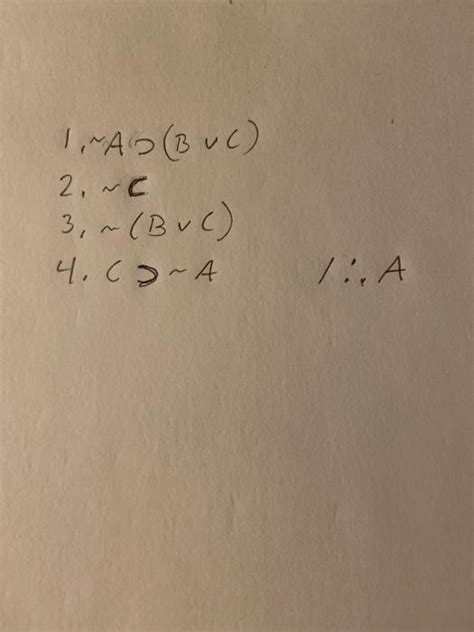 1, ~A⊃(B ∨ C)
2, ~C
3, ~(B ∨ C)
4. C⊃~A /∴ A